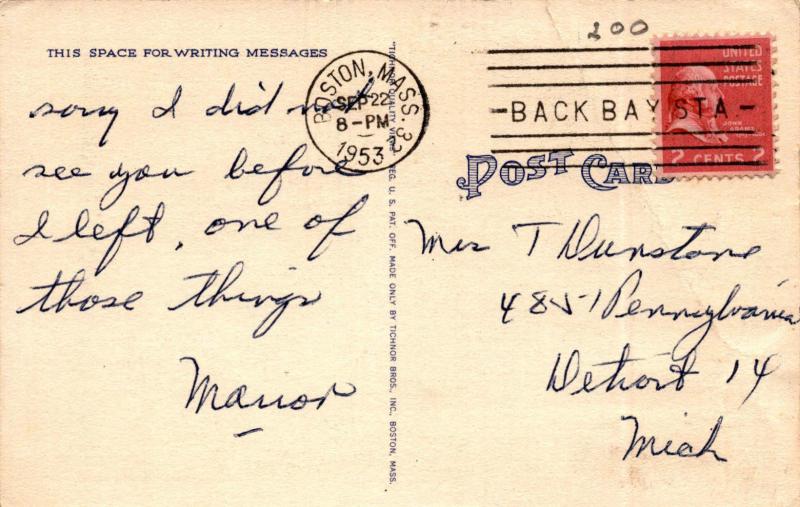 200
THIS SPACE FOR WRITING MESSAGES
BOSTON, MASS.
SEP 22
8-PM
1953
BACK BAY STA
UNITED
STATES
POSTAGE
JOHN
ADAMS
2 CENTS 2
POST CARD
sorry I did not
see you before
I left, one of
those things
Marion
"TICHNOR QUALITY VIEWS" REG. U. S. PAT. OFF. MADE ONLY BY TICHNOR BROS., INC., BOSTON, MASS.
Mrs T Dunstone
4851 Pennsylvania
Detroit 14
Mich